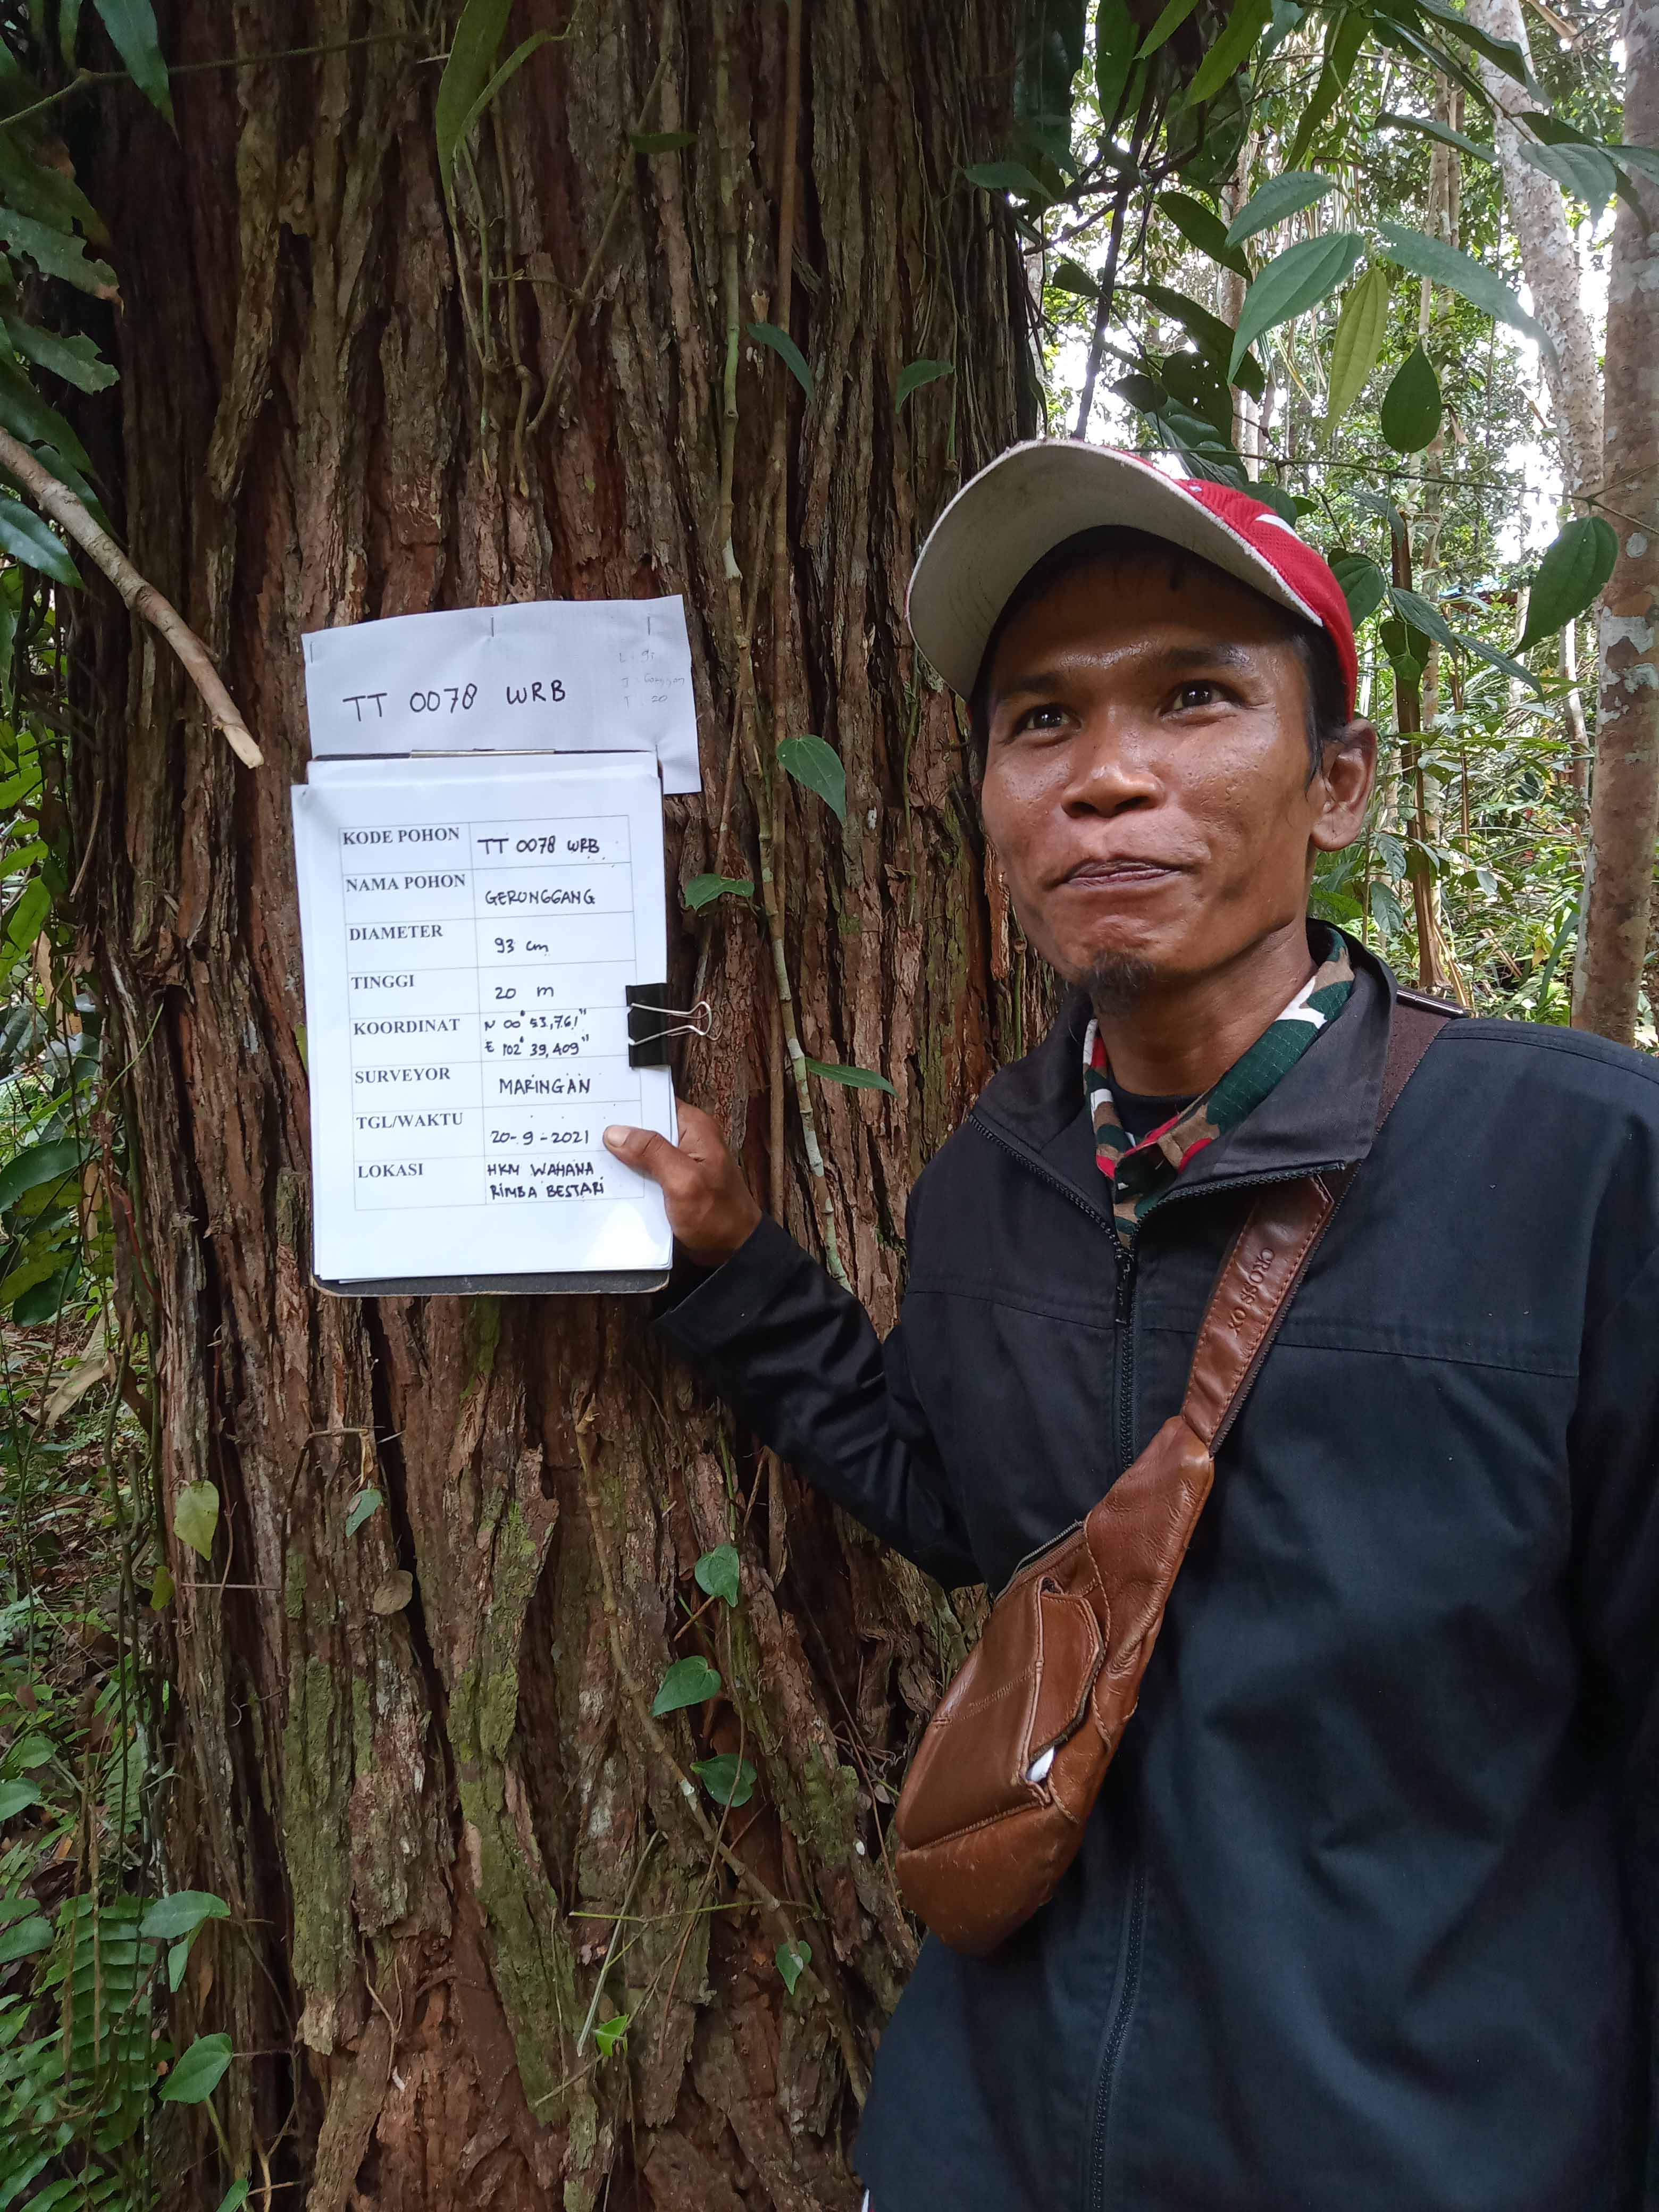 TT 0078 WRB
KODE POHON TT 0078 WRB
NAMA POHON GERONGGANG
DIAMETER 93 cm
TINGGI 20 m
KOORDINAT N 00° 53,761"
E 102° 39,409"
SURVEYOR MARINGAN
TGL/WAKTU 20-9-2021
LOKASI HKM WAHANA
RIMBA BESTARI
CROSS OX